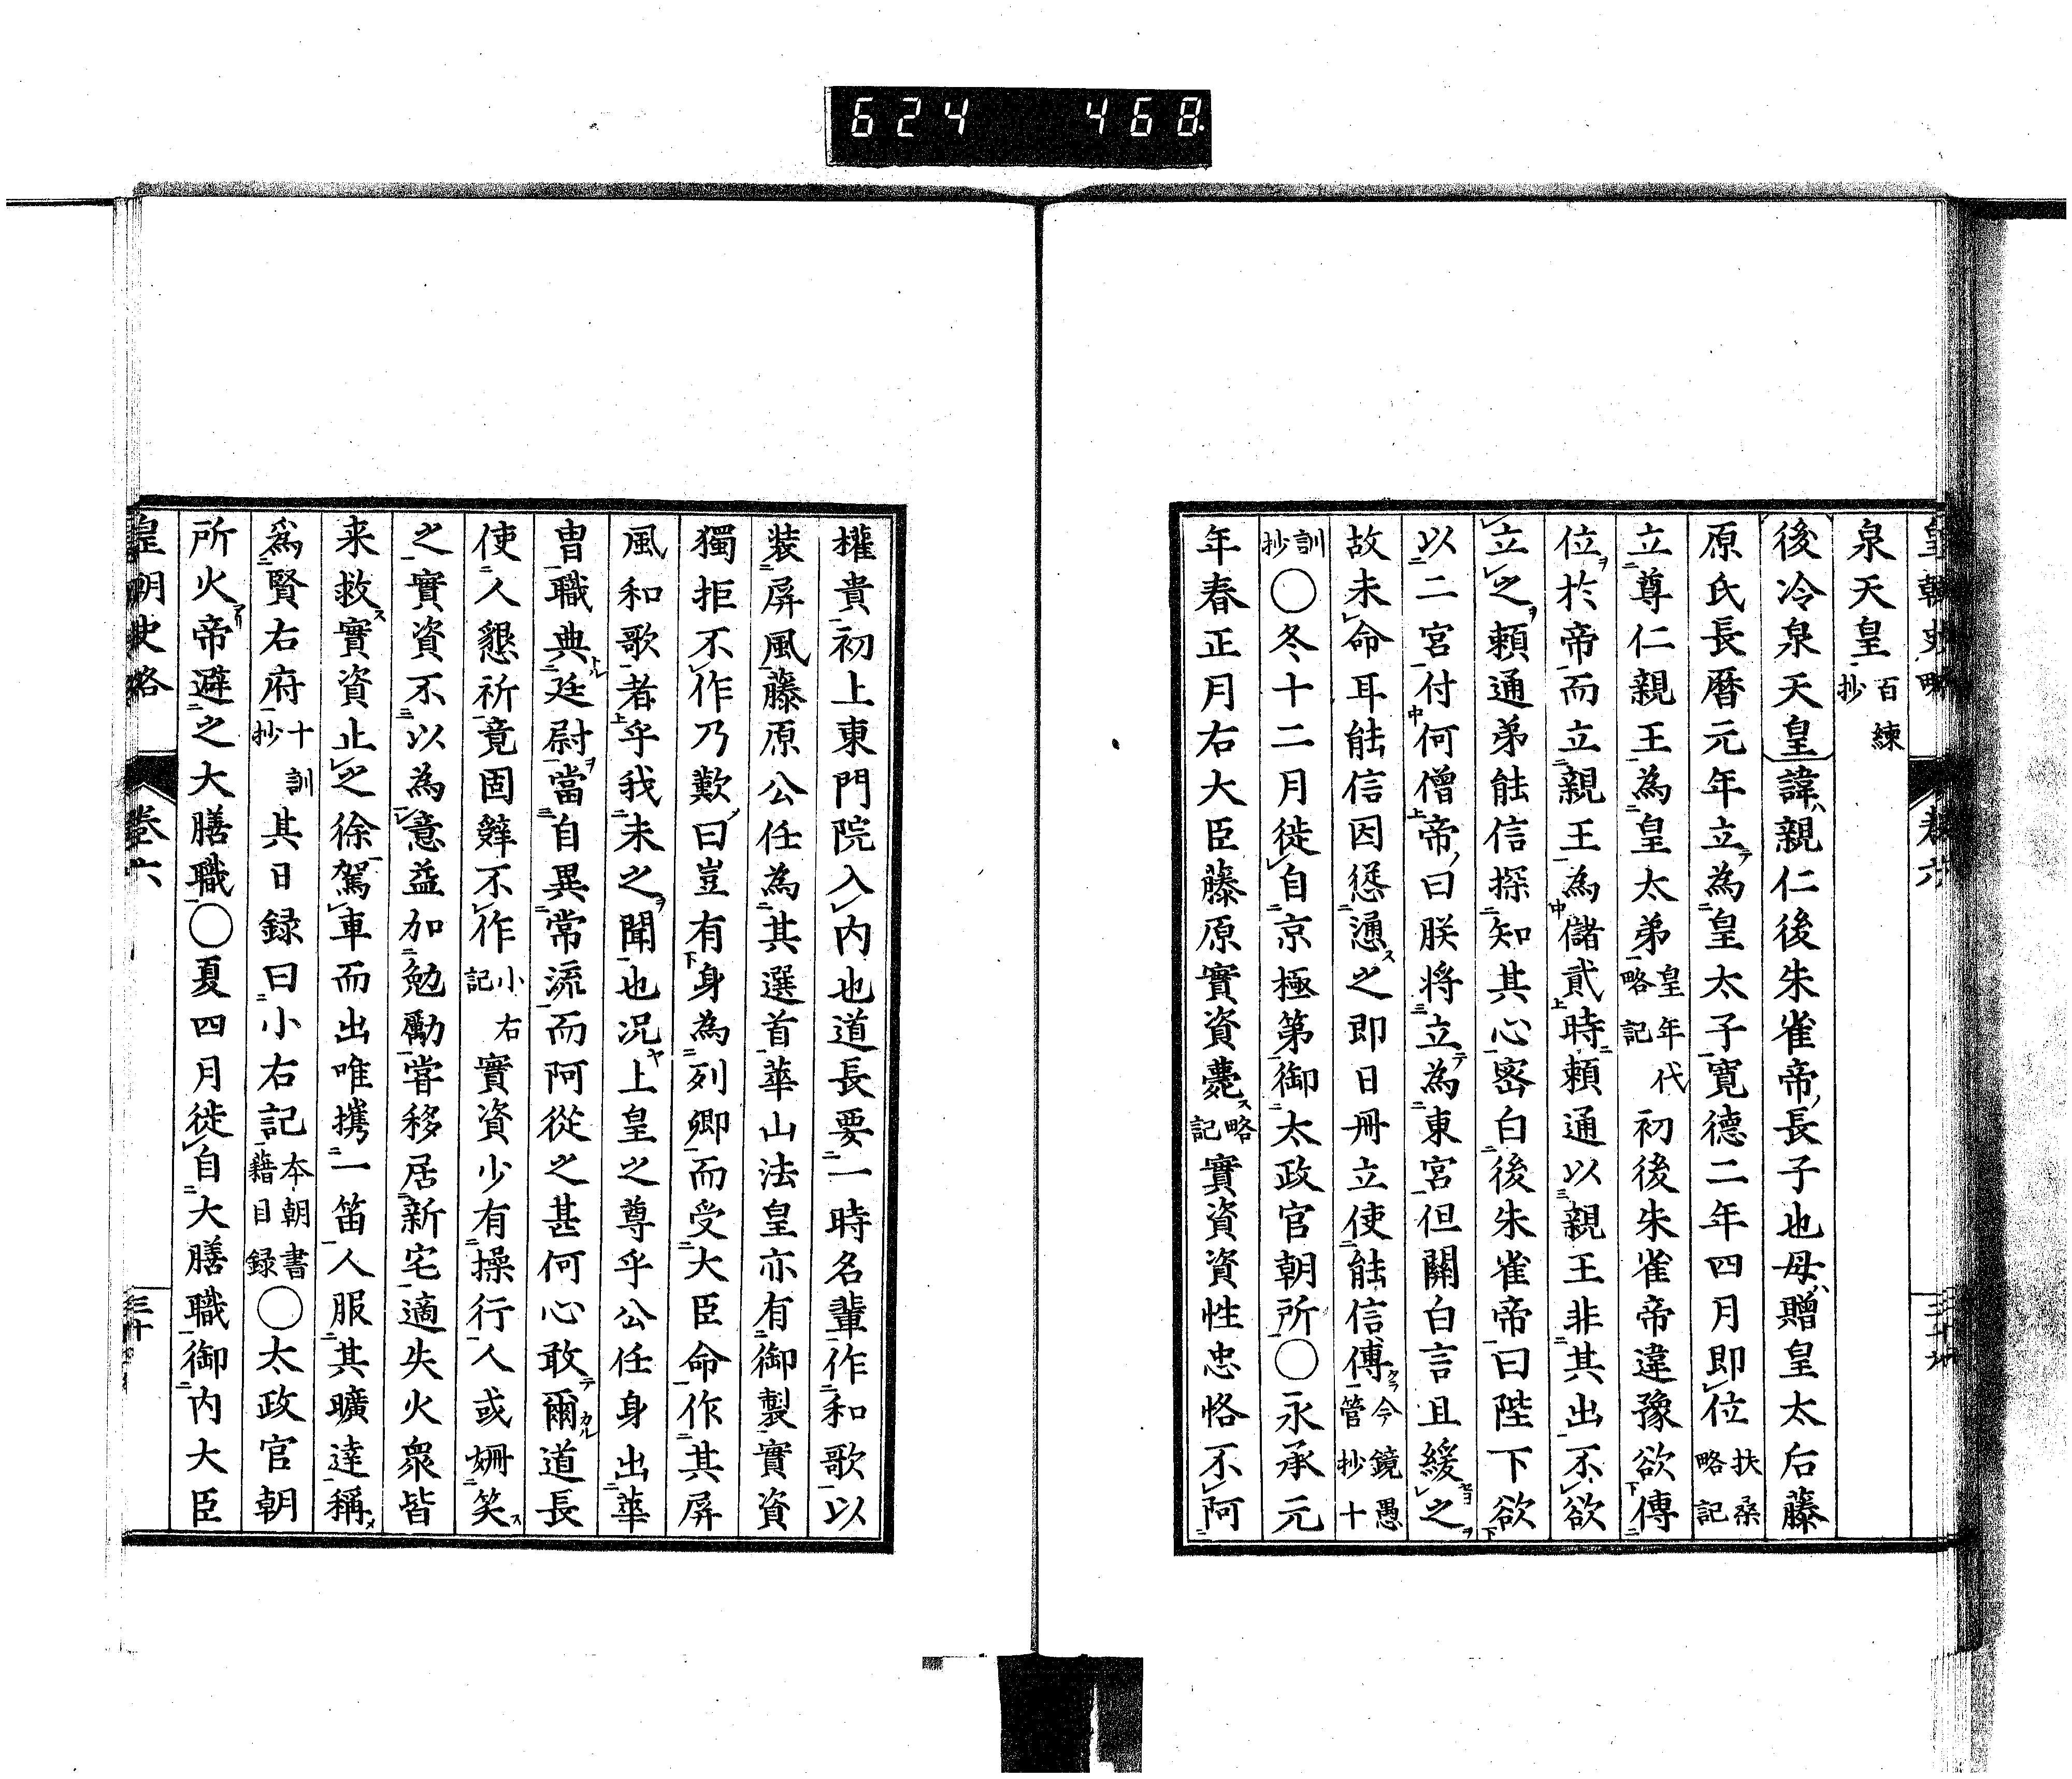 624 468
皇朝史略 卷六
泉天皇百練抄
後冷泉天皇諱親仁後朱雀帝長子也母贈皇太后藤
原氏長曆元年立為皇太子寬德二年四月即位扶桑略記
立尊仁親王為皇太弟皇年代略記初後朱雀帝違豫欲傳
位於帝而立親王為儲貳時賴通以親王非其出不欲
立之賴通弟能信探知其心密白後朱雀帝曰陛下欲
以二宮付何僧帝曰朕將立為東宮但關白言且緩之
故未命耳能信因慫慂之即日冊立使能信傅今鏡愚管抄十
訓抄○冬十二月徙自京極第御太政官朝所○永承元
年春正月右大臣藤原實資薨略記實資資性忠恪不阿
權貴初上東門院入內也道長要一時名輩作和歌以
裝屏風藤原公任為其選首華山法皇亦有御製實資
獨拒不作乃歎曰豈有身為列卿而受大臣命作其屏
風和歌者乎我未之聞也況上皇之尊乎公任身出華
胄職典廷尉當自異常流而阿從之甚何心敢爾道長
使人懇祈竟固辭不作小右記實資少有操行人或姍笑
之實資不以為意益加勉勵嘗移居新宅適失火眾皆
来救實資止之徐駕車而出唯攜一笛人服其曠達稱
為賢右府十訓抄其日録曰小右記本朝書籍目録○太政官朝
所火帝避之大膳職○夏四月徙自大膳職御內大臣
皇朝史略 卷六 三十